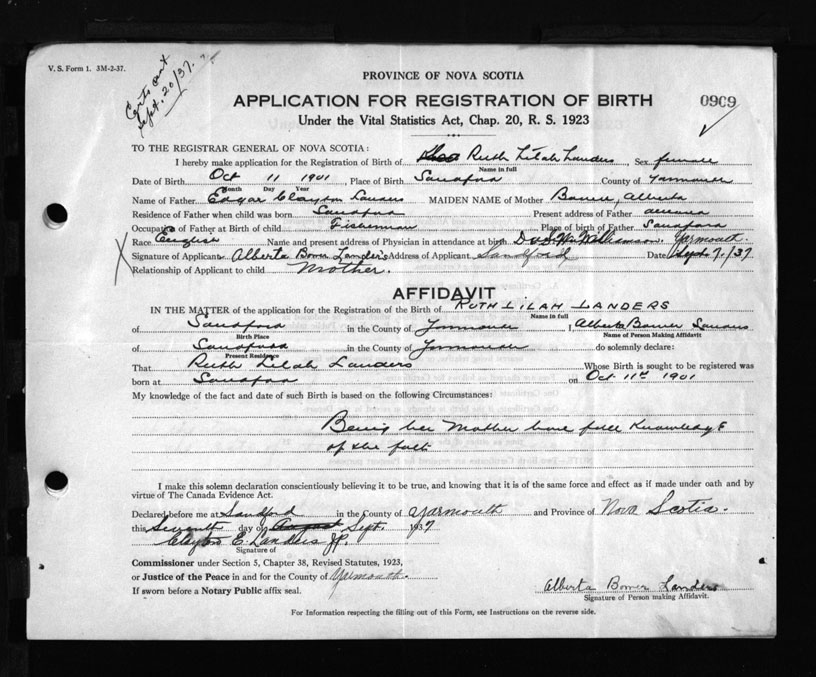 V. S. Form 1. 3M-2-37.
Certs sent
Sept. 20/37.
PROVINCE OF NOVA SCOTIA
APPLICATION FOR REGISTRATION OF BIRTH
0909
Under the Vital Statistics Act, Chap. 20, R. S. 1923
TO THE REGISTRAR GENERAL OF NOVA SCOTIA:
I hereby make application for the Registration of Birth of Ruth Lilah Landers, Sex female
Name in full
Date of Birth Oct 11 1901, Place of Birth Sandford County of Yarmouth
Month Day Year
Name of Father Edgar Clayton Landers MAIDEN NAME of Mother Bower, Alberta
Residence of Father when child was born Sandford Present address of Father
Occupation of Father at Birth of child Fisherman Place of birth of Father Sandford
Race English Name and present address of Physician in attendance at birth Williamson. Yarmouth.
Signature of Applicant Alberta Bower Landers Address of Applicant Sandford Date Sept 7/37
Relationship of Applicant to child Mother.
AFFIDAVIT
IN THE MATTER of the application for the Registration of the Birth of RUTH LILAH LANDERS
Name in full
of Sandford in the County of Yarmouth I, Alberta Bower Landers
Birth Place Name of Person Making Affidavit
of Sandford in the County of Yarmouth do solemnly declare:
Present Residence
That Ruth Lilah Landers Whose Birth is sought to be registered was
born at Sandford on Oct 11th 1901
My knowledge of the fact and date of such Birth is based on the following Circumstances:
Being her Mother have full Knowledge
of the fact
I make this solemn declaration conscientiously believing it to be true, and knowing that it is of the same force and effect as if made under oath and by
virtue of The Canada Evidence Act.
Declared before me at Sandford in the County of Yarmouth and Province of Nova Scotia.
this Seventh day of August Sept. 1937
Clayton E. Landers J.P.
Signature of
Commissioner under Section 5, Chapter 38, Revised Statutes, 1923,
or Justice of the Peace in and for the County of Yarmouth.
If sworn before a Notary Public affix seal.
Alberta Bower Landers
Signature of Person making Affidavit.
For Information respecting the filling out of this Form, see Instructions on the reverse side.